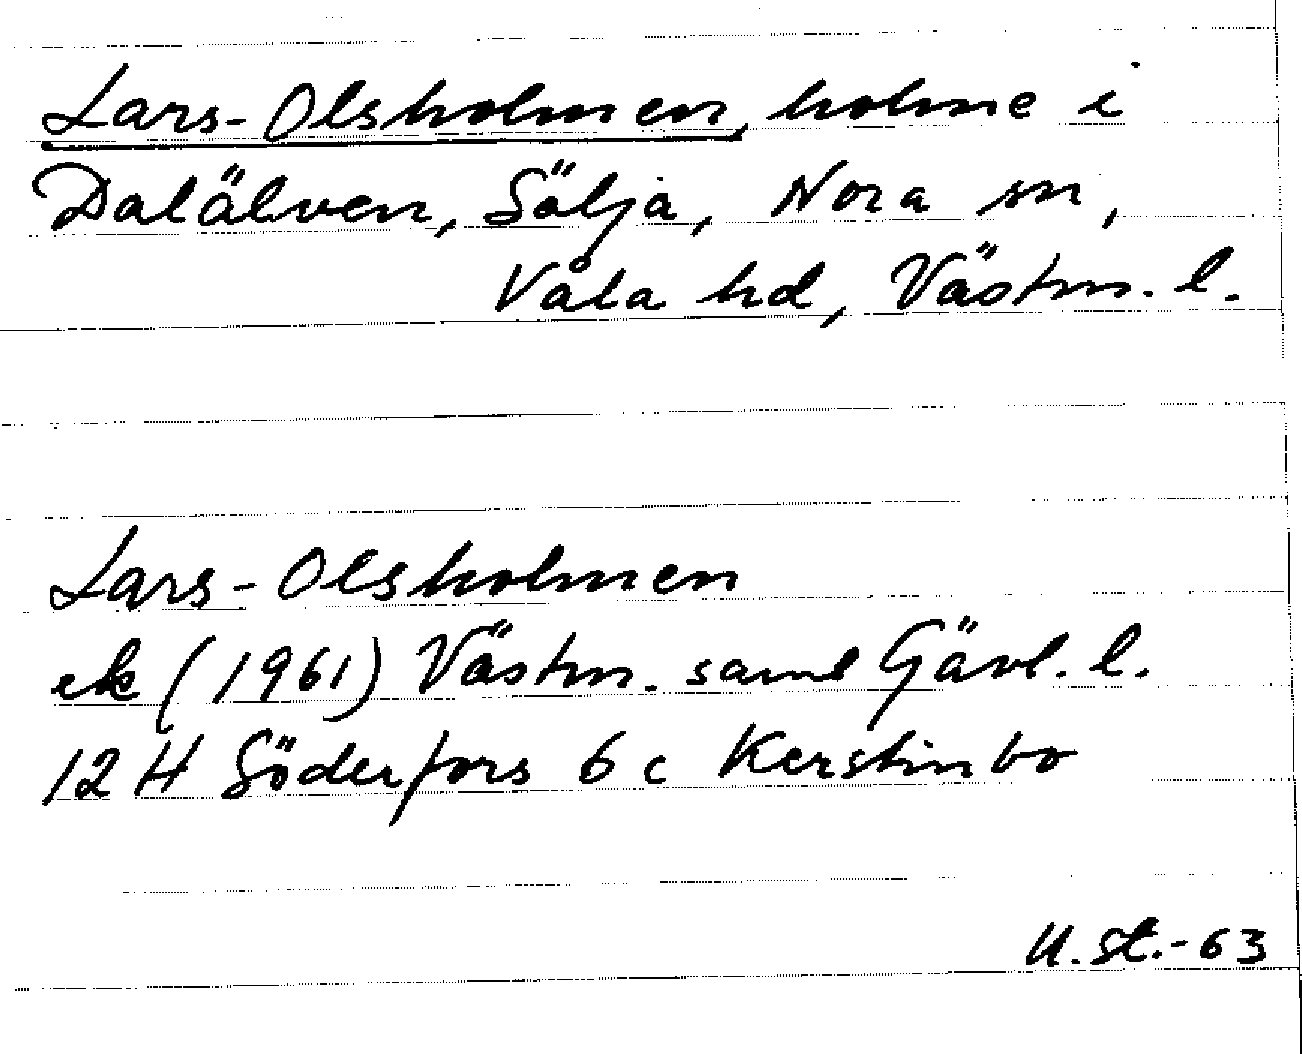 Lars-Olsholmen, holme i
Dalälven, Sälja, Nora sn,
Våla hd, Västm. l.
Lars-Olsholmen
ek (1961) Västm. saml Gävl. l.
12 H Söderfors 6 c Kerstinbo
U.St.-63